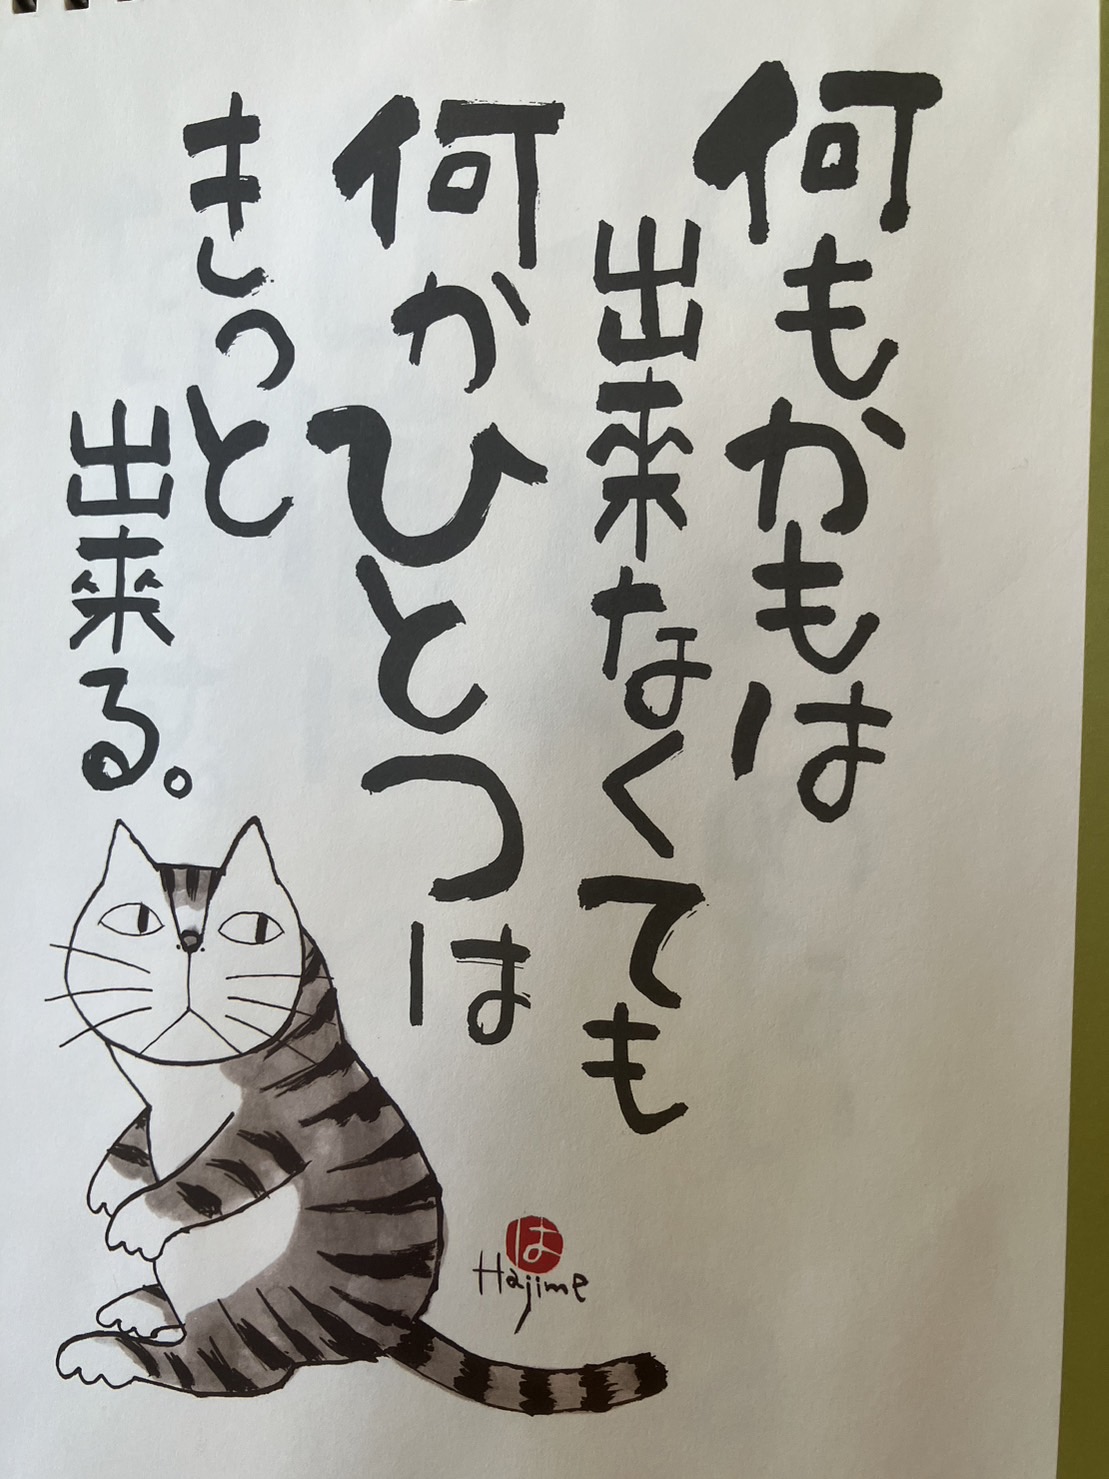 何もかもは
出来なくても
何かひとつは
きっと
出来る。
は
Hajime